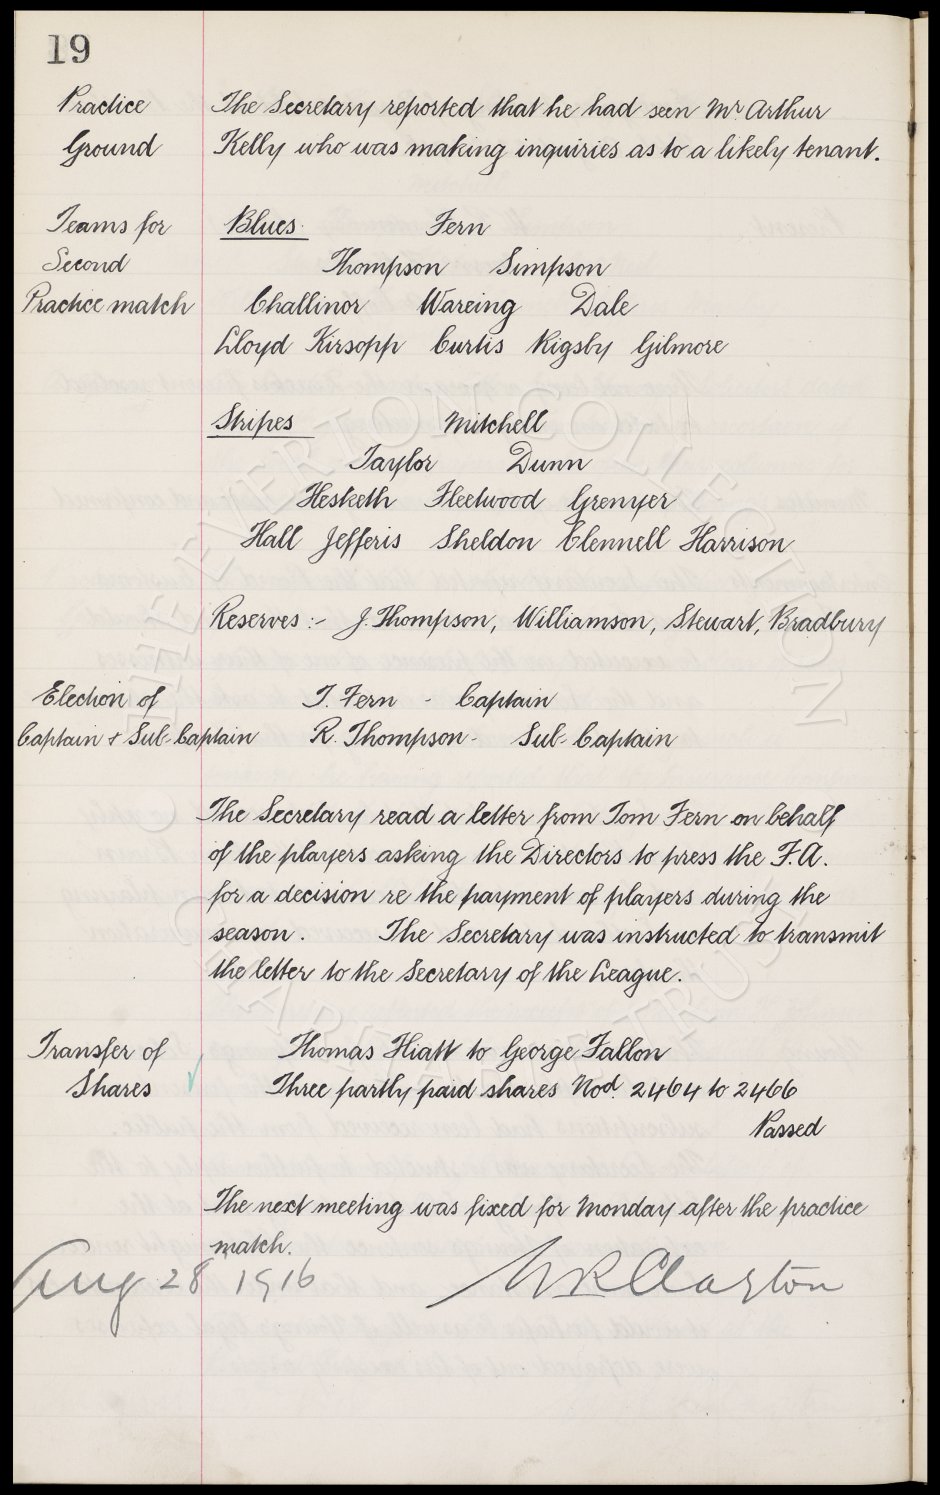 19
Practice The Secretary reported that he had seen Mr. Arthur
Ground Kelly who was making inquiries as to a likely tenant.
Teams for Blues. Fern
Second Thompson Simpson
Practice match Challinor Wareing Dale
Lloyd Kirsopp Curtis Rigsby Gilmore
Stripes Mitchell
Taylor Dunn
Hesketh Fleetwood Grenyer
Hall Jefferis Sheldon Clennell Harrison
Reserves :- J. Thompson, Williamson, Stewart, Bradbury
Election of T. Fern - Captain
Captain & Sub-Captain R. Thompson - Sub-Captain
The Secretary read a letter from Tom Fern on behalf
of the players asking the Directors to press the F.A.
for a decision re the payment of players during the
season. The Secretary was instructed to transmit
the letter to the Secretary of the League.
Transfer of Thomas Hiatt to George Fallon
Shares Three partly paid shares Nod. 2464 to 2466
Passed
The next meeting was fixed for Monday after the practice
match.
Aug 28 1916 WRClayton
THE EVERTON COLLECTION
CHARITABLE TRUST